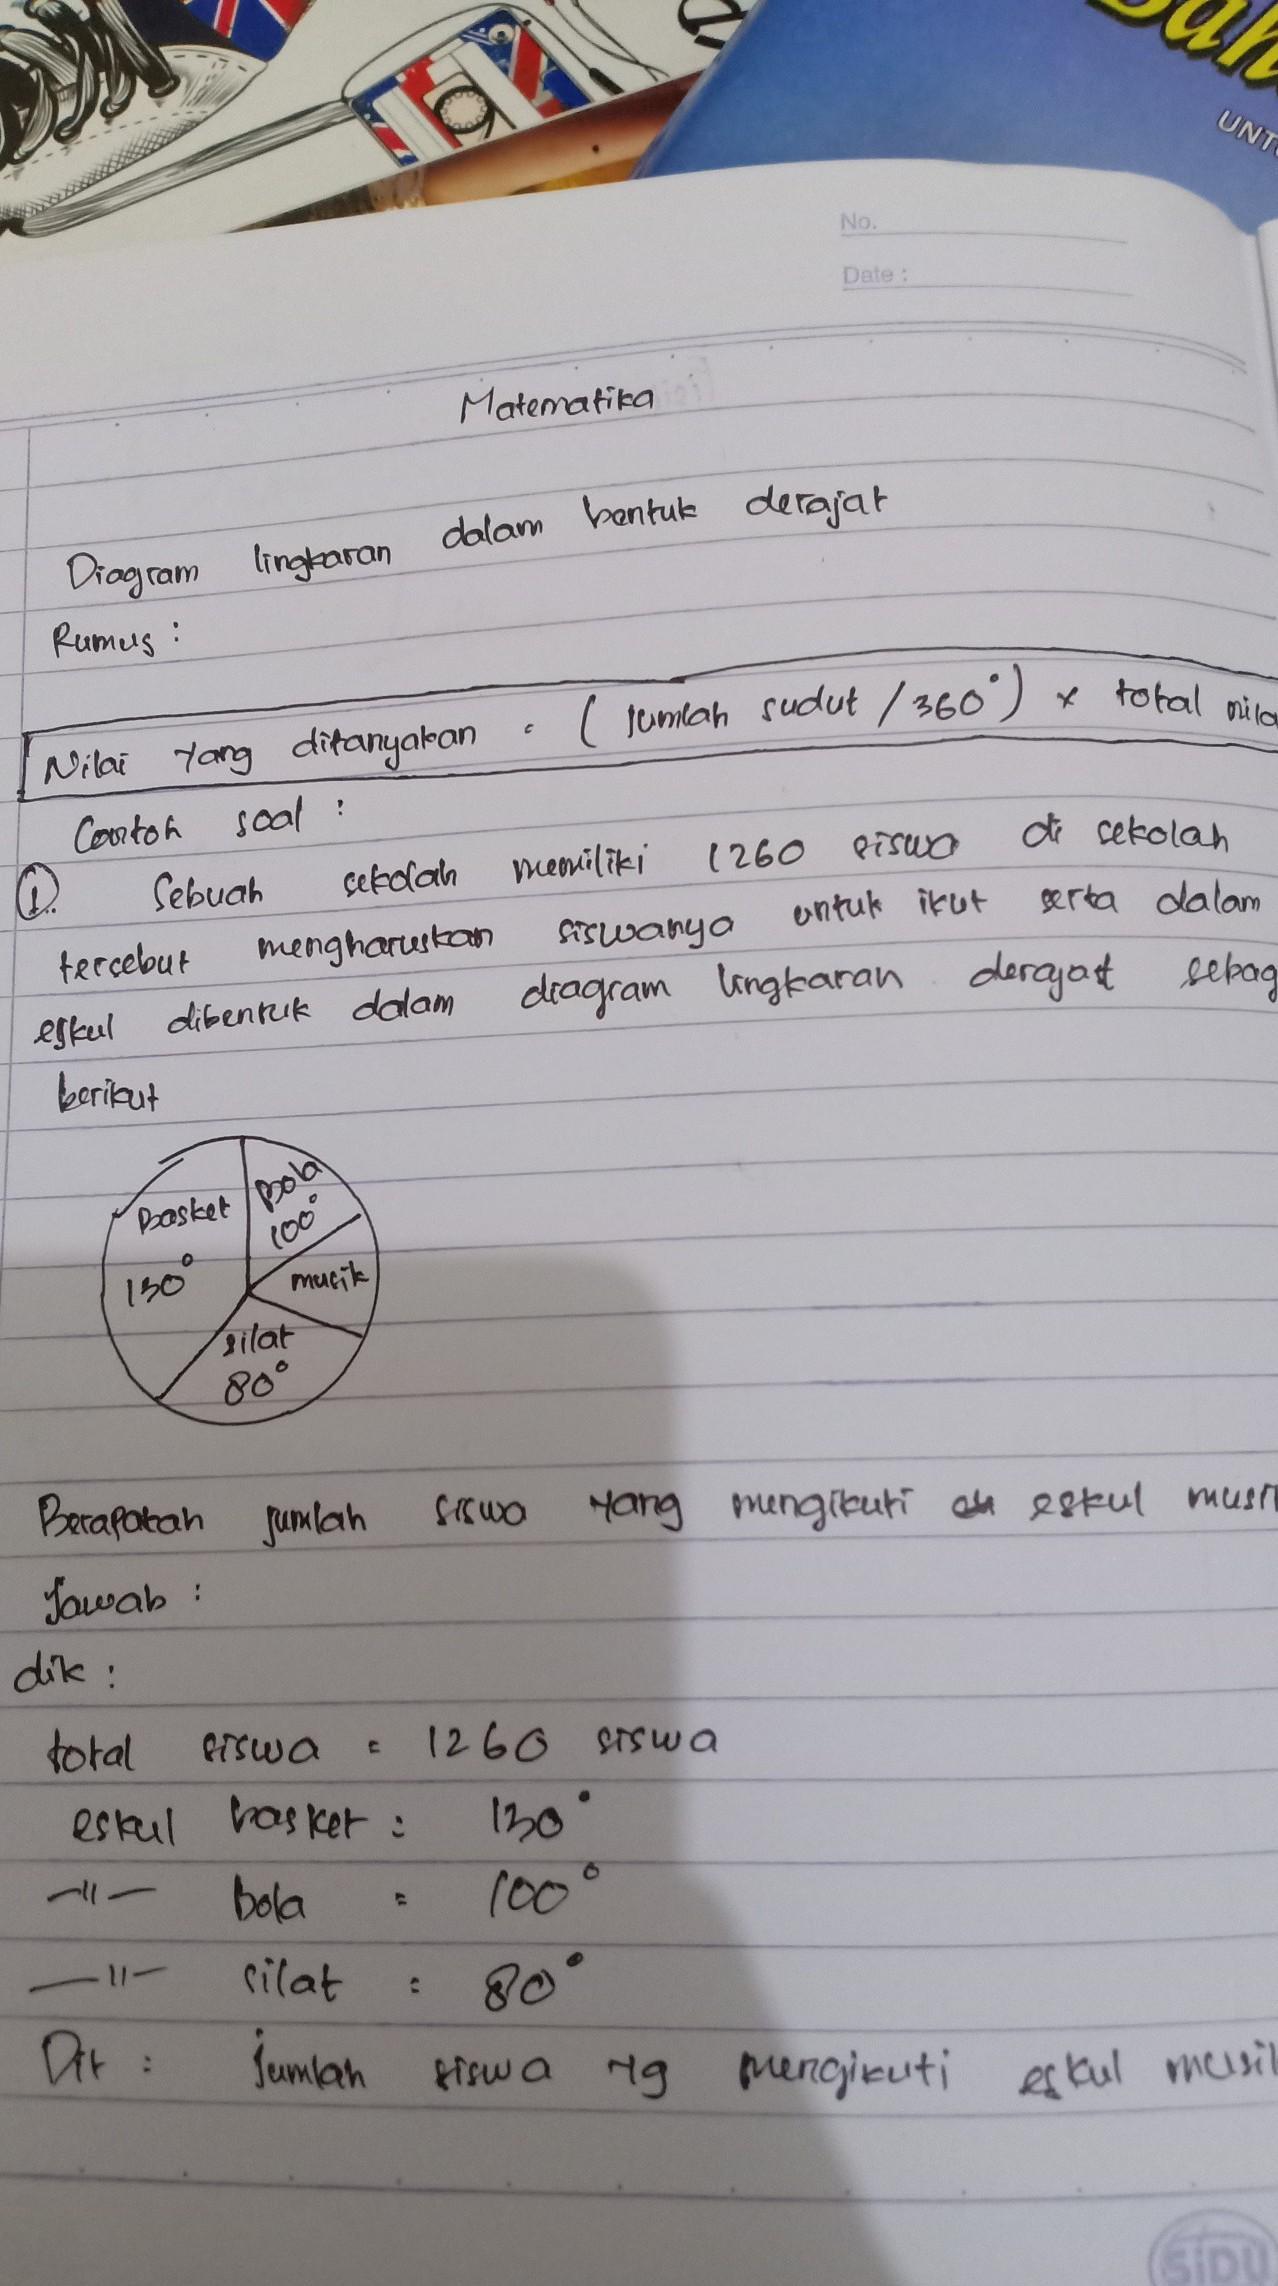 UNT
No.
Date :
Matematika
Diagram lingkaran dalam bentuk derajat
Rumus :
Nilai yang ditanyakan = ( jumlah sudut / 360° ) x total nila
Contoh soal :
1. Sebuah sekolah memiliki 1260 siswa di sekolah
tercebut mengharuskan siswanya untuk ikut serta dalam
eskul dibentuk dalam diagram lingkaran derajat sebag
berikut
basket
130°
bola
100°
musik
silat
80°
Berapakah jumlah siswa yang mengikuti eskul musi
Jawab :
dik :
total siswa = 1260 siswa
eskul basket = 130°
-"- bola = 100°
-"- silat = 80°
Dit : jumlah siswa yg mengikuti eskul musik
SIDU